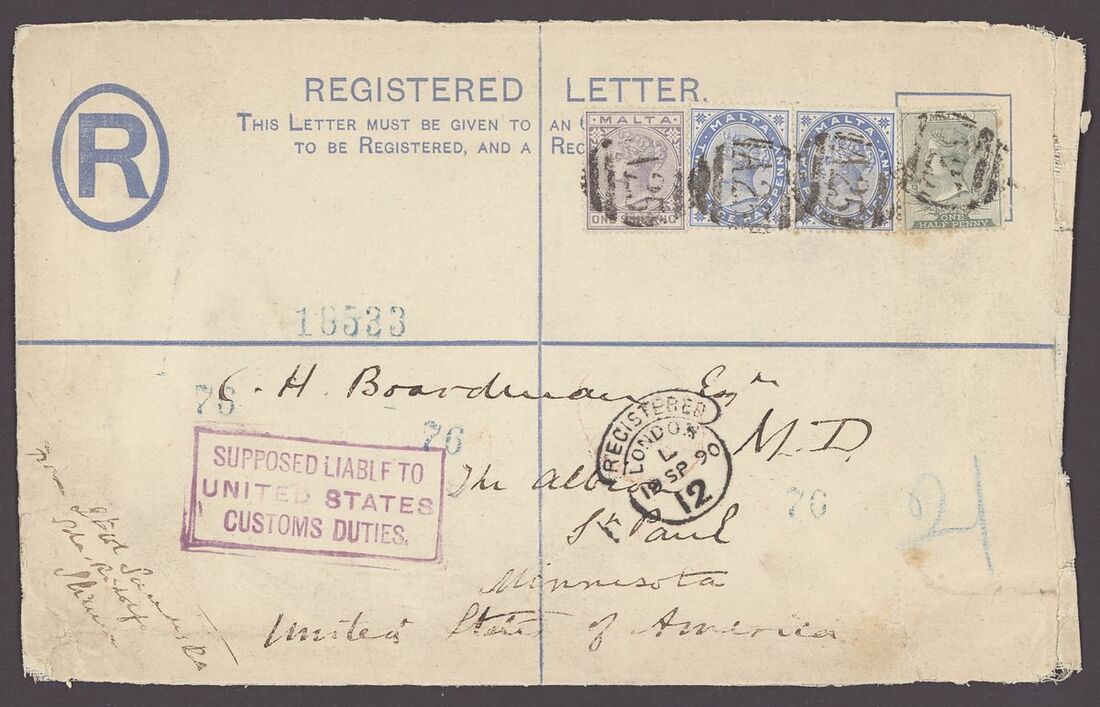 REGISTERED LETTER.
THIS LETTER MUST BE GIVEN TO AN
TO BE REGISTERED, AND A REC
R
MALTA
ONE SHILLING
MALTA
PENNY
MALTA
PENNY
MALTA
ONE
HALF PENNY
A25
A25
A25
16533
C. H. Boardman Esqre
M.D.
76
76
76
The Albion
St Paul
Minnesota
United States of America
REGISTERED
LONDON
L
19 SP 90
12
SUPPOSED LIABLE TO
UNITED STATES
CUSTOMS DUTIES.
21
from